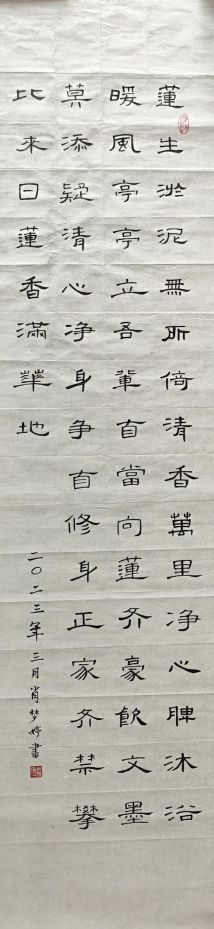 蓮生淤泥無所倚清香萬里净心脾沐浴
暖風亭亭立吾輩自當向蓮齐豪飲文墨
莫添疑清心净身争自修身正家齐禁攀
比來日蓮香滿華地
二〇二三年三月肖梦婷書